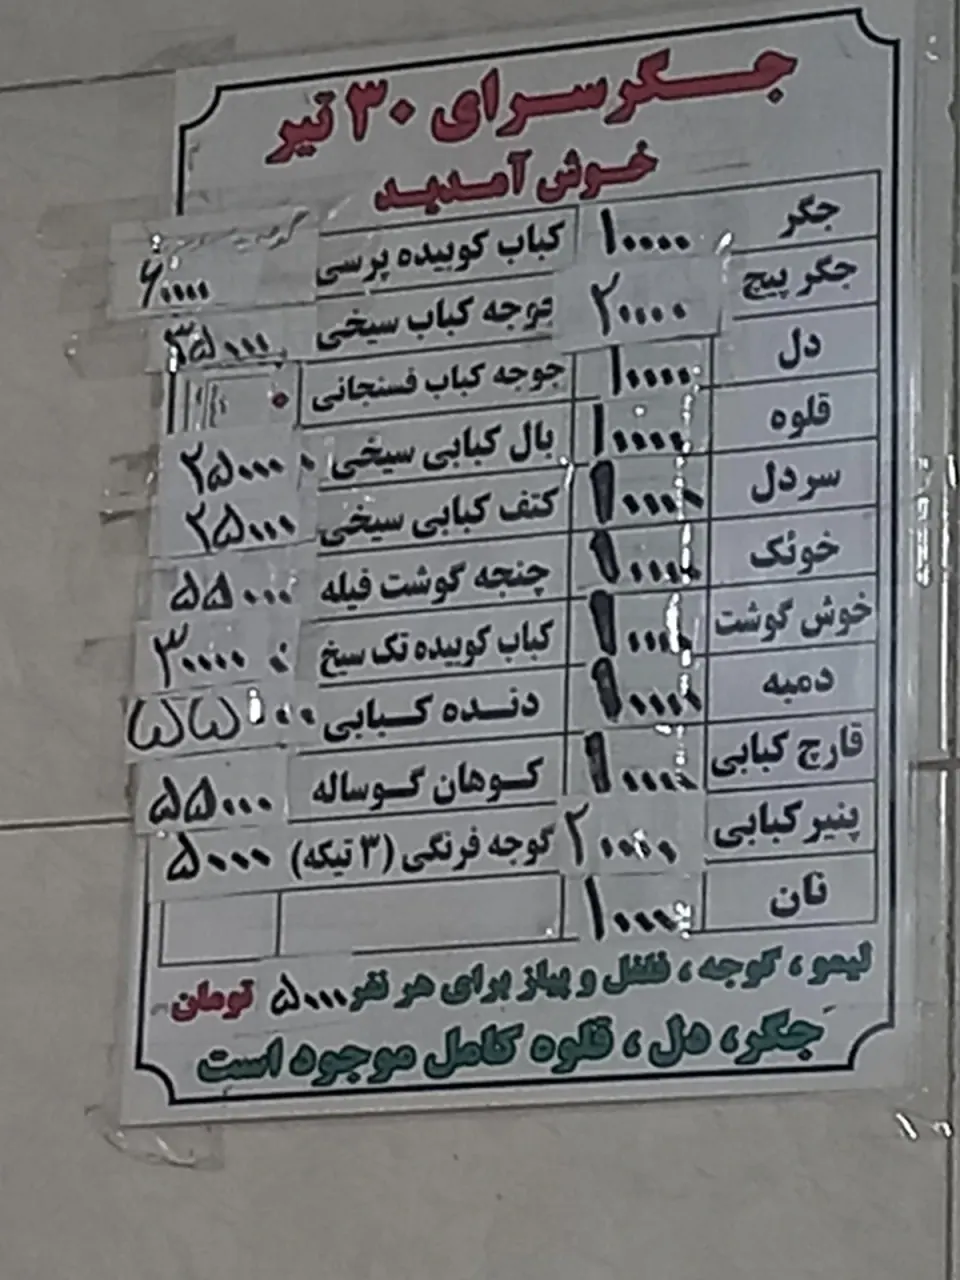 جگرسرای ۳۰ تیر
خوش آمدید
جگر ۱۰۰۰۰ کباب کوبیده پرسی ۶۰۰۰۰
جگر پیچ ۲۰۰۰۰ جوجه کباب سیخی ۳۵۰۰۰
دل ۱۰۰۰۰ جوجه کباب فسنجانی
قلوه ۱۰۰۰۰ بال کبابی سیخی ۲۵۰۰۰
سردل ۱۰۰۰۰ کتف کبابی سیخی ۲۵۰۰۰
خوئک ۱۰۰۰۰ چنجه گوشت فیله ۵۵۰۰۰
خوش گوشت ۱۰۰۰۰ کباب کوبیده تک سیخ ۳۰۰۰۰
دمبه ۱۰۰۰۰ دنده کبابی ۵۵۰۰۰
قارچ کبابی ۱۰۰۰۰ کوهان گوساله ۵۵۰۰۰
پنیر کبابی ۲۰۰۰۰ گوجه فرنگی (۳ تیکه) ۵۰۰۰
نان ۱۰۰۰۰
لیمو، گوجه، فلفل و پیاز برای هر نفر ۵۰۰۰ تومان
جگر، دل، قلوه کامل موجود است